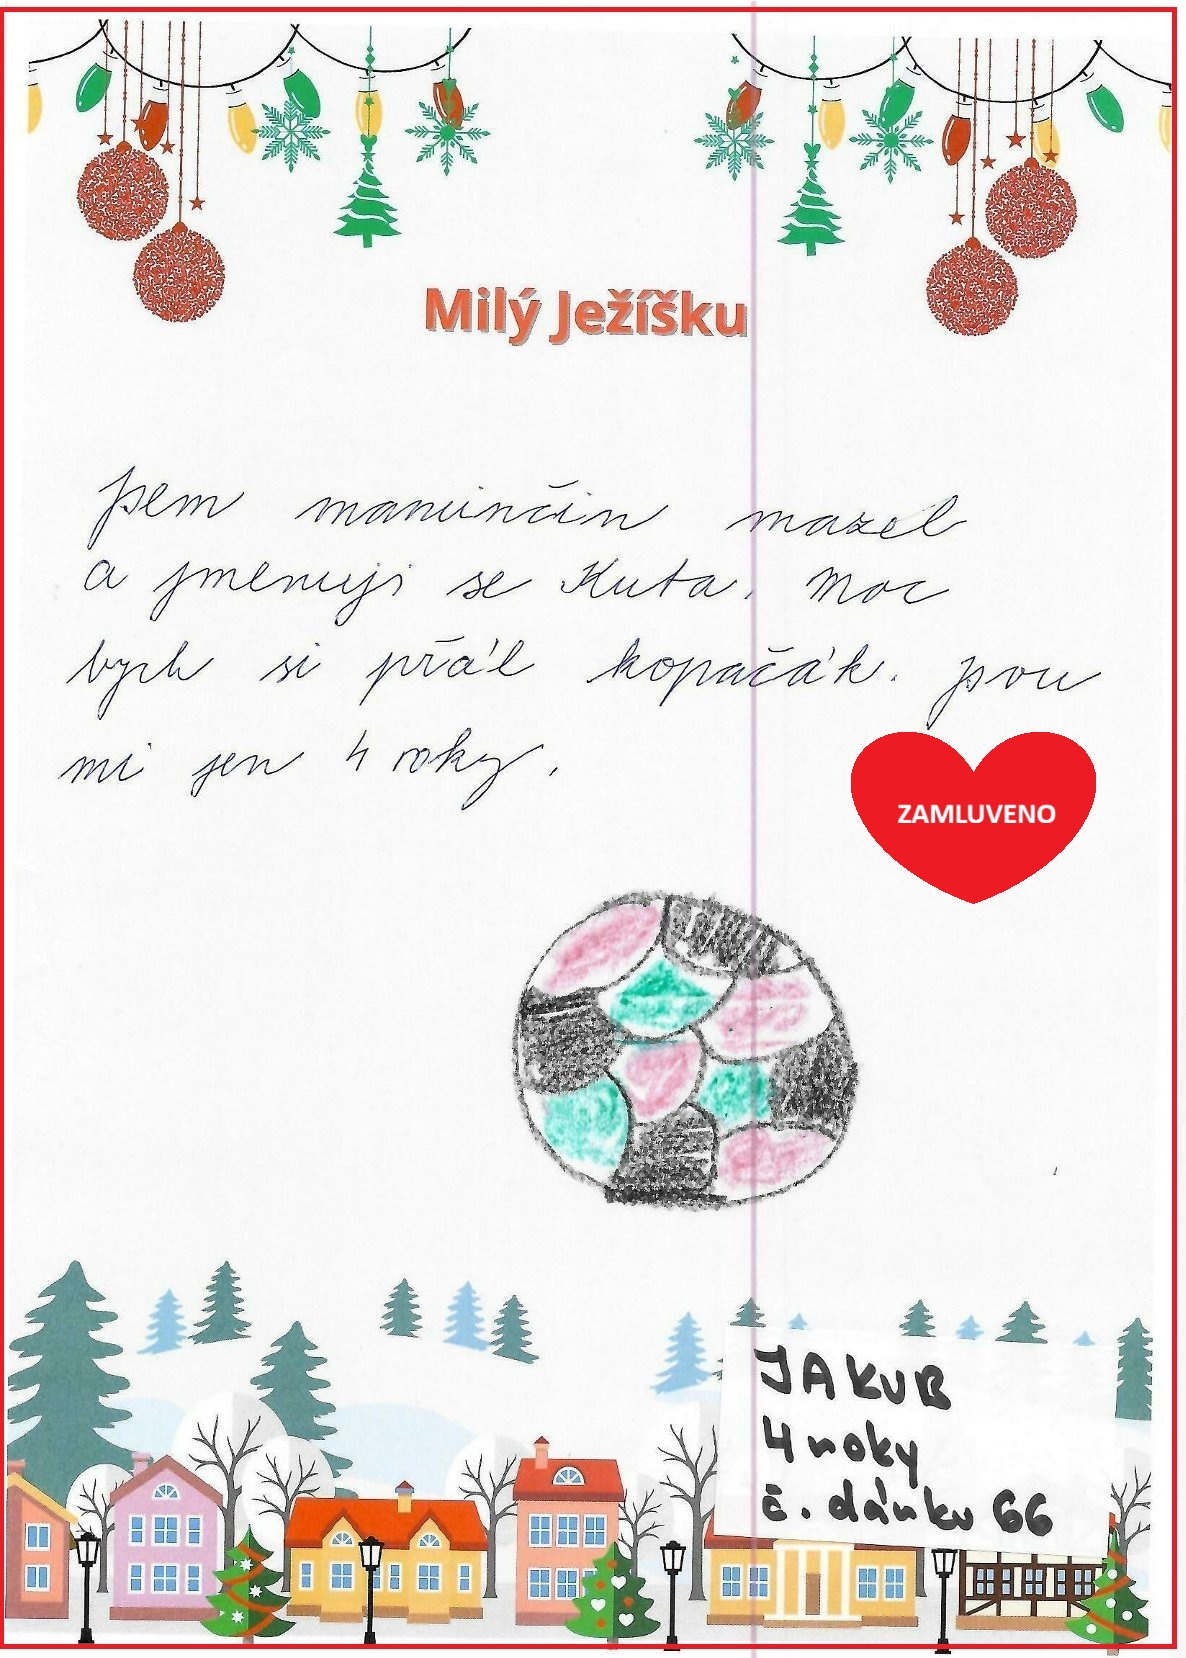 Milý Ježíšku
Jsem maminčin mazel
a jmenuji se Kuba. Moc
bych si přál kopačák. Jsou
mi jen 4 roky.
ZAMLUVENO
JAKUB
4 roky
č. dárku 66